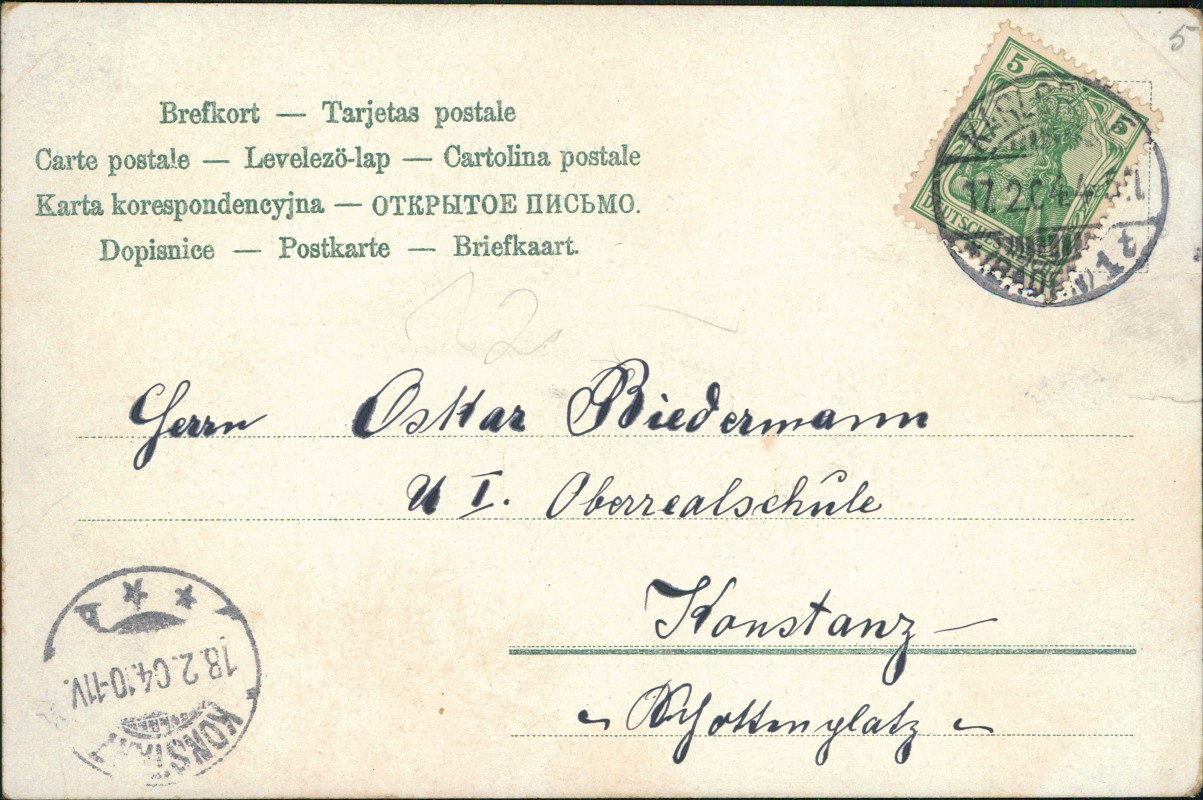 5
Brefkort — Tarjetas postale
Carte postale — Levelezö-lap — Cartolina postale
Karta korespondencyjna — ОТКРЫТОЕ ПИСЬМО.
Dopisnice — Postkarte — Briefkaart.
5 5
DEUTSCHES
17.2.04
12
Herrn Oskar Biedermann
U I. Oberrealschule
Konstanz —
Schottenplatz
18.2.04.10-11V.
KONSTANZ